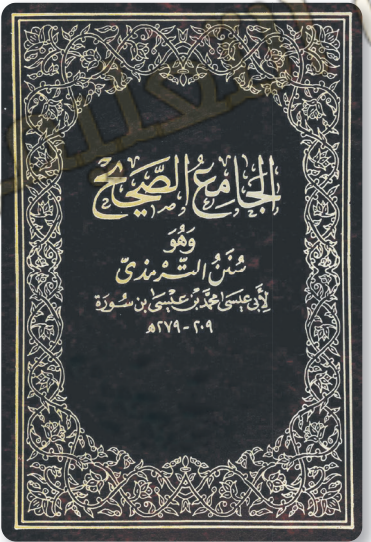 الجَامِعُ الصَّحِيحُ
وَهُوَ
سُنَنُ التِّرْمِذِيّ
لِأَبِي عِيسَى مُحَمَّدِ بْنِ عِيسَى بْنِ سَوْرَة
٢٠٩ - ٢٧٩ هـ